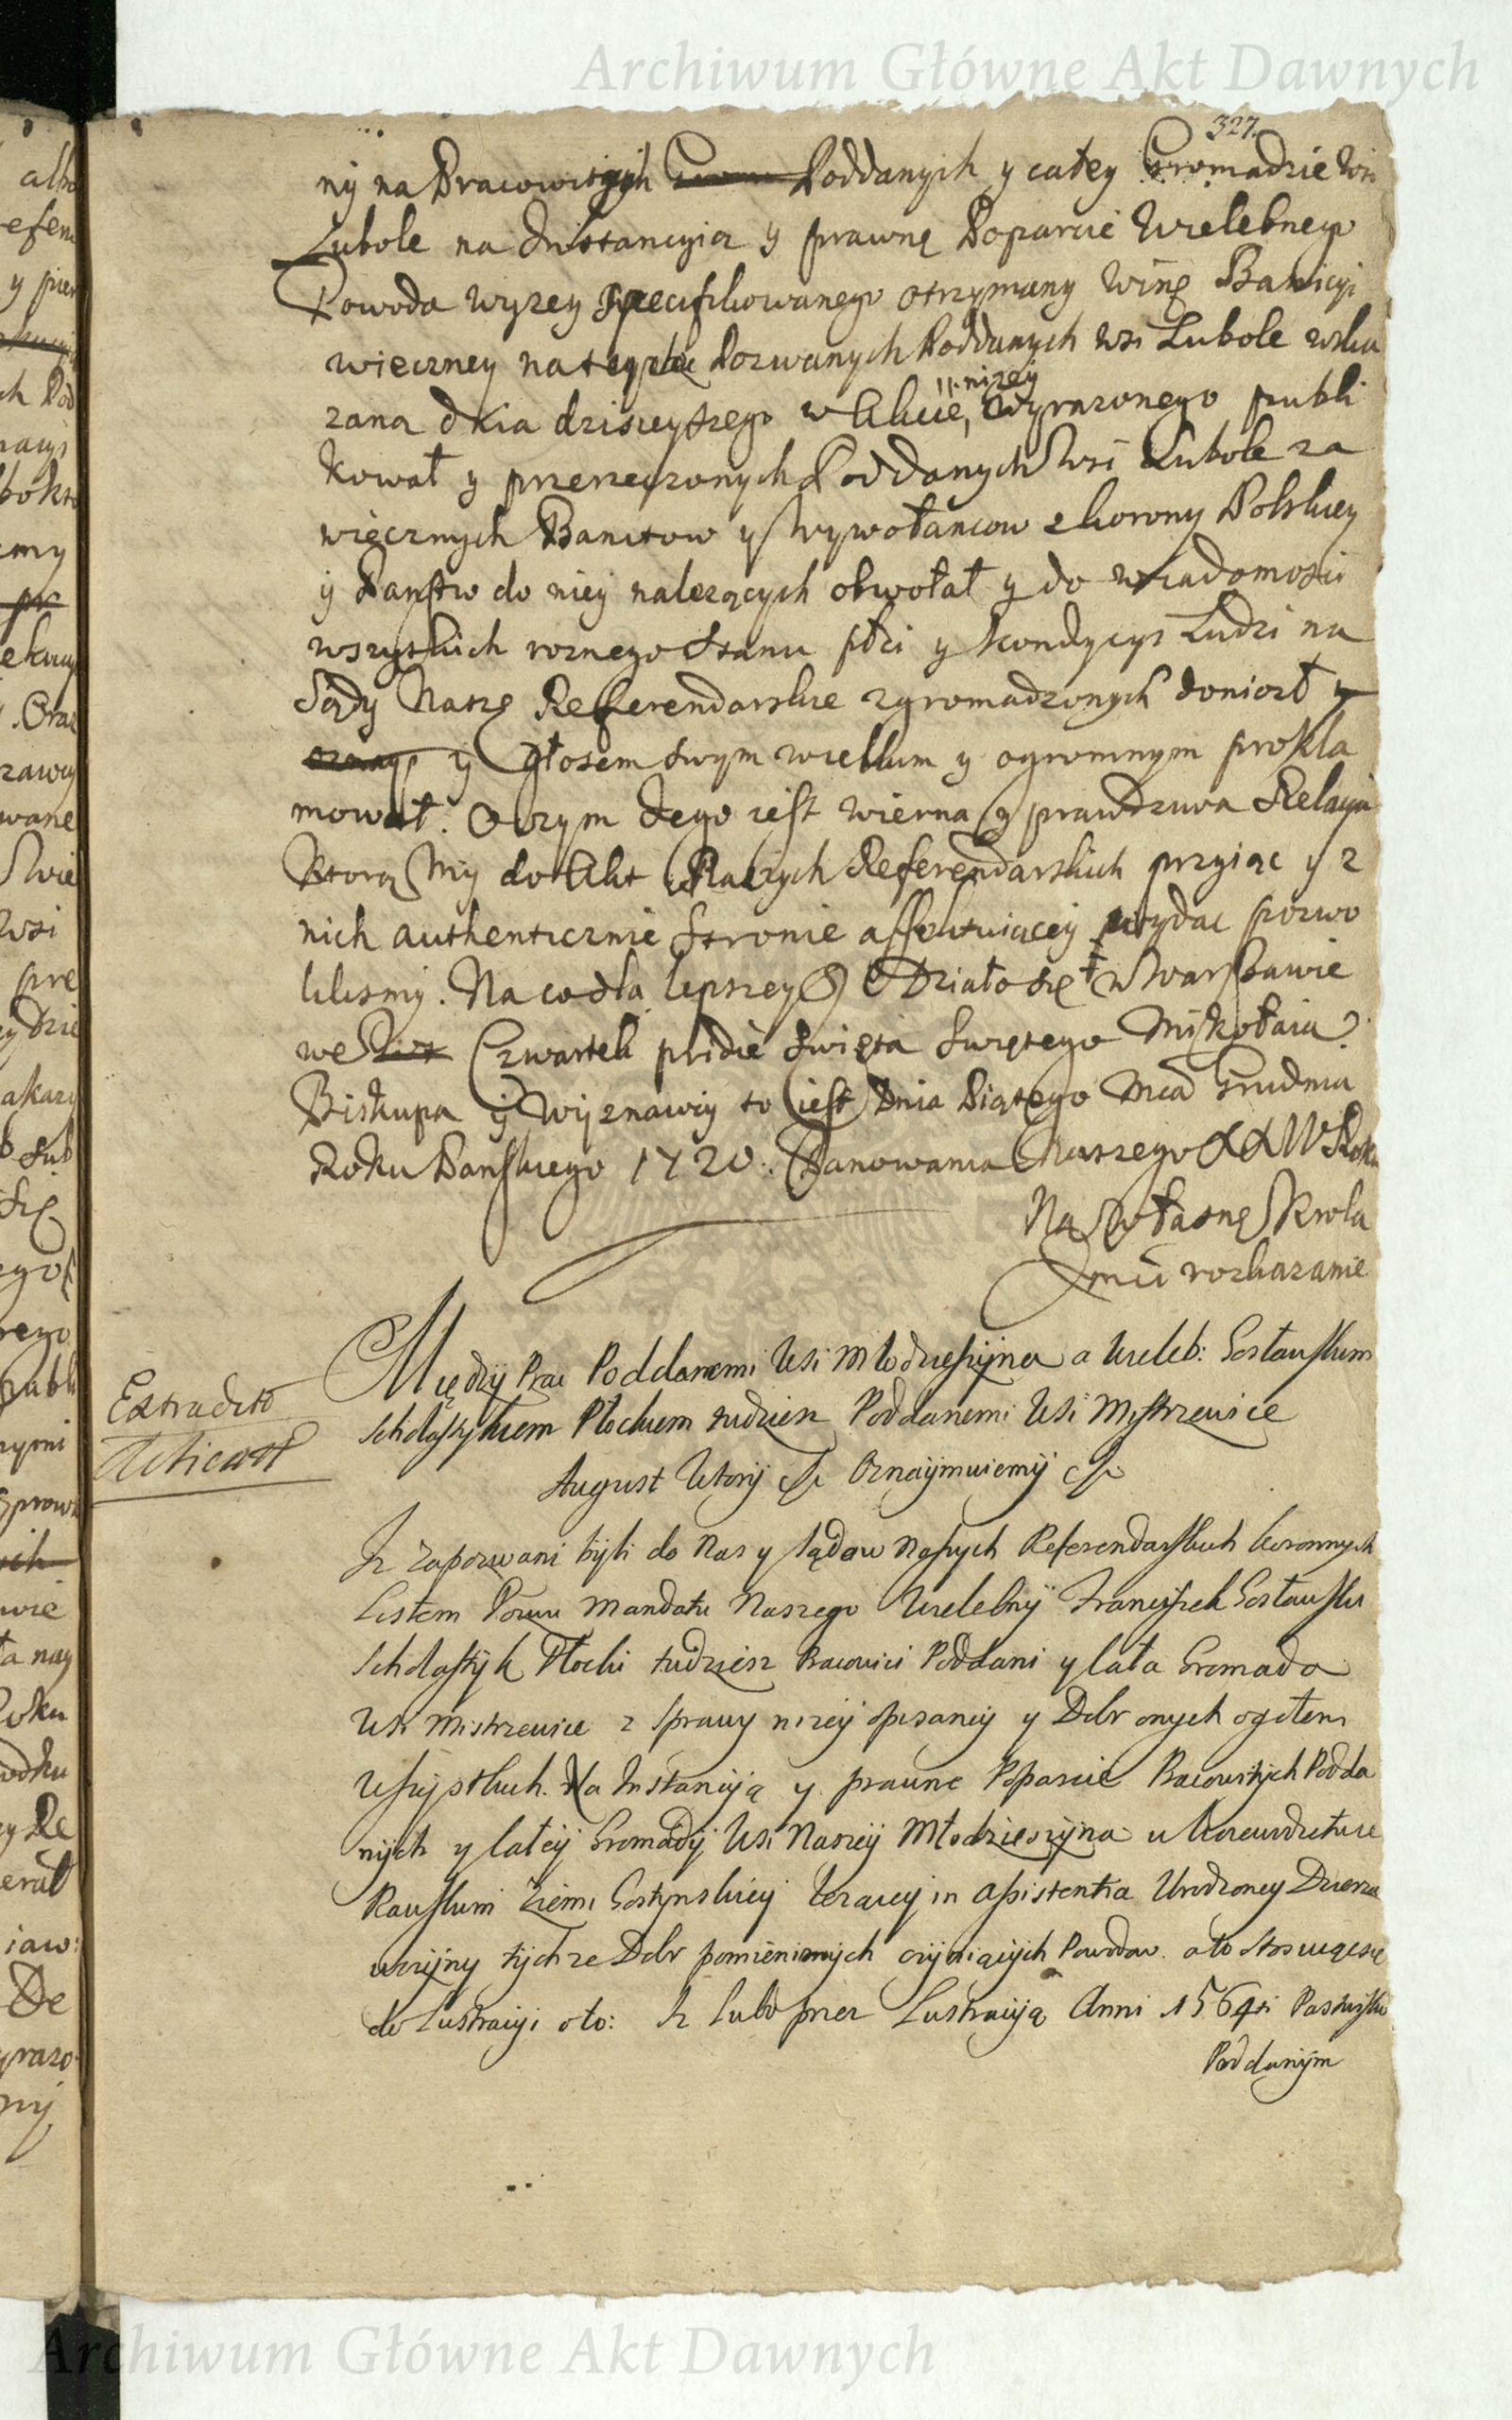 Archiwum Główne Akt Dawnych
327.
ny na Pracowitych Poddanych y całey Gromadzie Wsi
Lubole na Instancyią y prawnę Poparcie Wielebnego
Powoda wyzey specifikowanego otrzymany winę Banicyi
wieczney na tychze Pozwanych Poddanych wsi Lubole wska
zaną dnia dzisieyszego w Akcie, nizey wyrazonego publi
kował y przerzeczonych Poddanych Wsi Lubole za
wiecznych Banitow y Wywołancow z Korony Polskiey
y Panstw do niey nalezących obwołał y do wiadomosci
wszystkich roznego Stanu płci y kondycyi Ludzi na
Sądy Nasze Referendarskie zgromadzonych doniosł y
y głosem swym wielkim y ogromnym prokla
mował. O czym Jego iest wierna y prawdziwa Relacya
Ktorą My do Akt Naszych Referendarskich przyiąc y z
nich authentycznie Stronie affektuiącey wydac pozwo
lilismy. Na co dla lepszey Działo się w Warszawie
we Czwartek pridie Swięta Swiętego Mikołaia
Biskupa y Wyznawcy to iest Dnia Piątego Mca Grudnia
Roku Panskiego 1720. Panowania Naszego XXIV Roku
Na własne Krola
Jmci rozkazanie
Extradito
Między Prac Poddanemi Wsi Młodzieszyna a Wieleb: Gostawskim
Scholastykiem Płockiem tudziesz Poddanemi Wsi Mistrzewice
August Wtory &c Oznaymuiemy &c
Iz zapozwani byli do Nas y sądow Naszych Referendarskich koronnych
Listem Pozwu Mandatu Naszego Wielebny Franciszek Gostawski
Scholastyk Płocki tudziesz Pracowici Poddani y cała Gromada
Wsi Mistrzewice z sprawy nizey opisaney y Dobr onych ogołem
Wszystkich. Na Instancyią y prawne Poparcie Pracowitych Podda
nych y całey Gromady Wsi Naszey Młodzieszyna w Woiewodztwie
Rawskim Ziemi Gostynskiey lezącey in assistentia Urodzoney Dzierza
wczyny tychze Dobr pomienionych czyniących Powodow. a to stosuiąc się
do Lustracyi oto: Iz lubo przez Lustracyią Anni 1564ti Pastwisko
Poddanym
Archiwum Główne Akt Dawnych